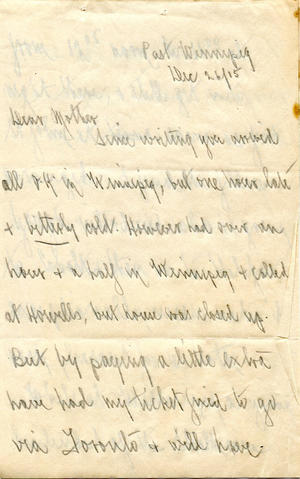 Past Winnipeg
Dec 26/15
Dear Mother
Since writing you arrived
all O.K. in Winnipeg, but one hour late
& bitterly cold. However had over an
hour & a half in Winnipeg & called
at Howells, but house was closed up.
But by paying a little extra
have had my ticket fixed to go
via Toronto & will have